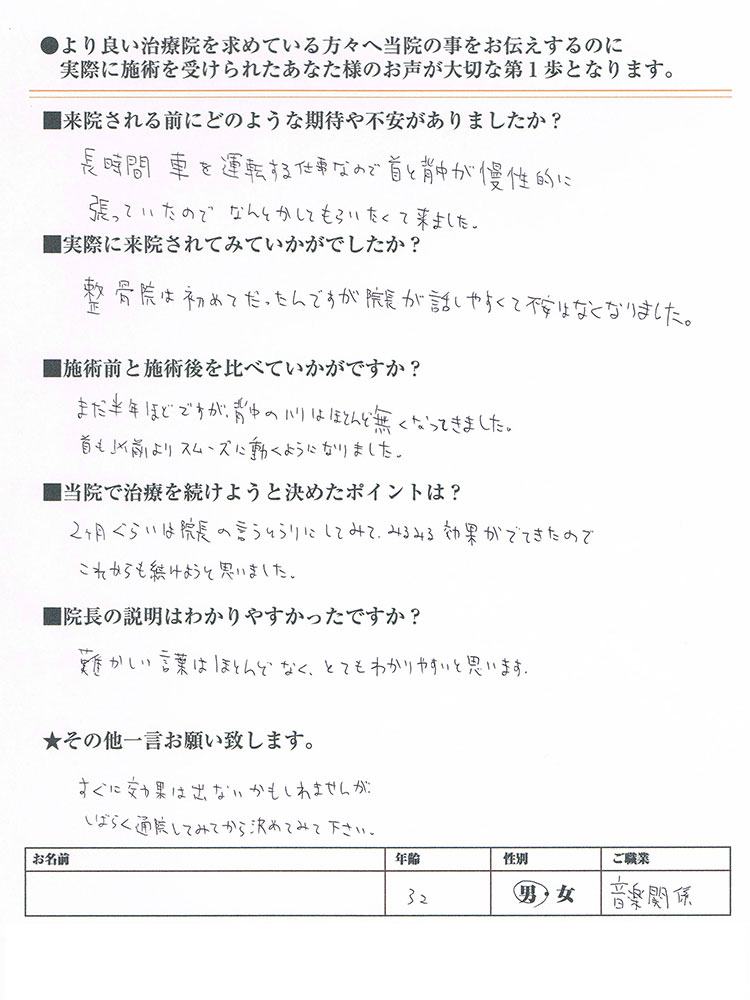 ●より良い治療院を求めている方々へ当院の事をお伝えするのに
実際に施術を受けられたあなた様のお声が大切な第1歩となります。
■来院される前にどのような期待や不安がありましたか？
長時間 車を運転する仕事なので首と背中が慢性的に
張っていたので なんとかしてもらいたくて来ました。
■実際に来院されてみていかがでしたか？
整骨院は初めてだったんですが院長が話しやすくて不安はなくなりました。
■施術前と施術後を比べていかがですか？
まだ半年ほどですが、背中のハリはほとんど無くなってきました。
首も以前よりスムーズに動くようになりました。
■当院で治療を続けようと決めたポイントは？
2ヶ月ぐらいは院長の言うとうりにしてみて、みるみる効果がでてきたので
これからも続けようと思いました。
■院長の説明はわかりやすかったですか？
難かしい言葉はほとんどなく、とてもわかりやすいと思います。
★その他一言お願い致します。
すぐに効果は出ないかもしれませんが、
しばらく通院してみてから決めてみて下さい。
お名前 年齢 性別 ご職業
32 男・女 音楽関係